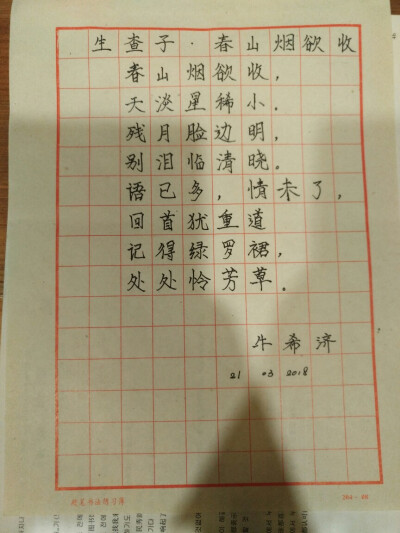 生查子·春山烟欲收
春山烟欲收，
天淡星稀小。
残月脸边明，
别泪临清晓。
语已多，情未了，
回首犹重道
记得绿罗裙，
处处怜芳草。
牛希济
21 03 2018